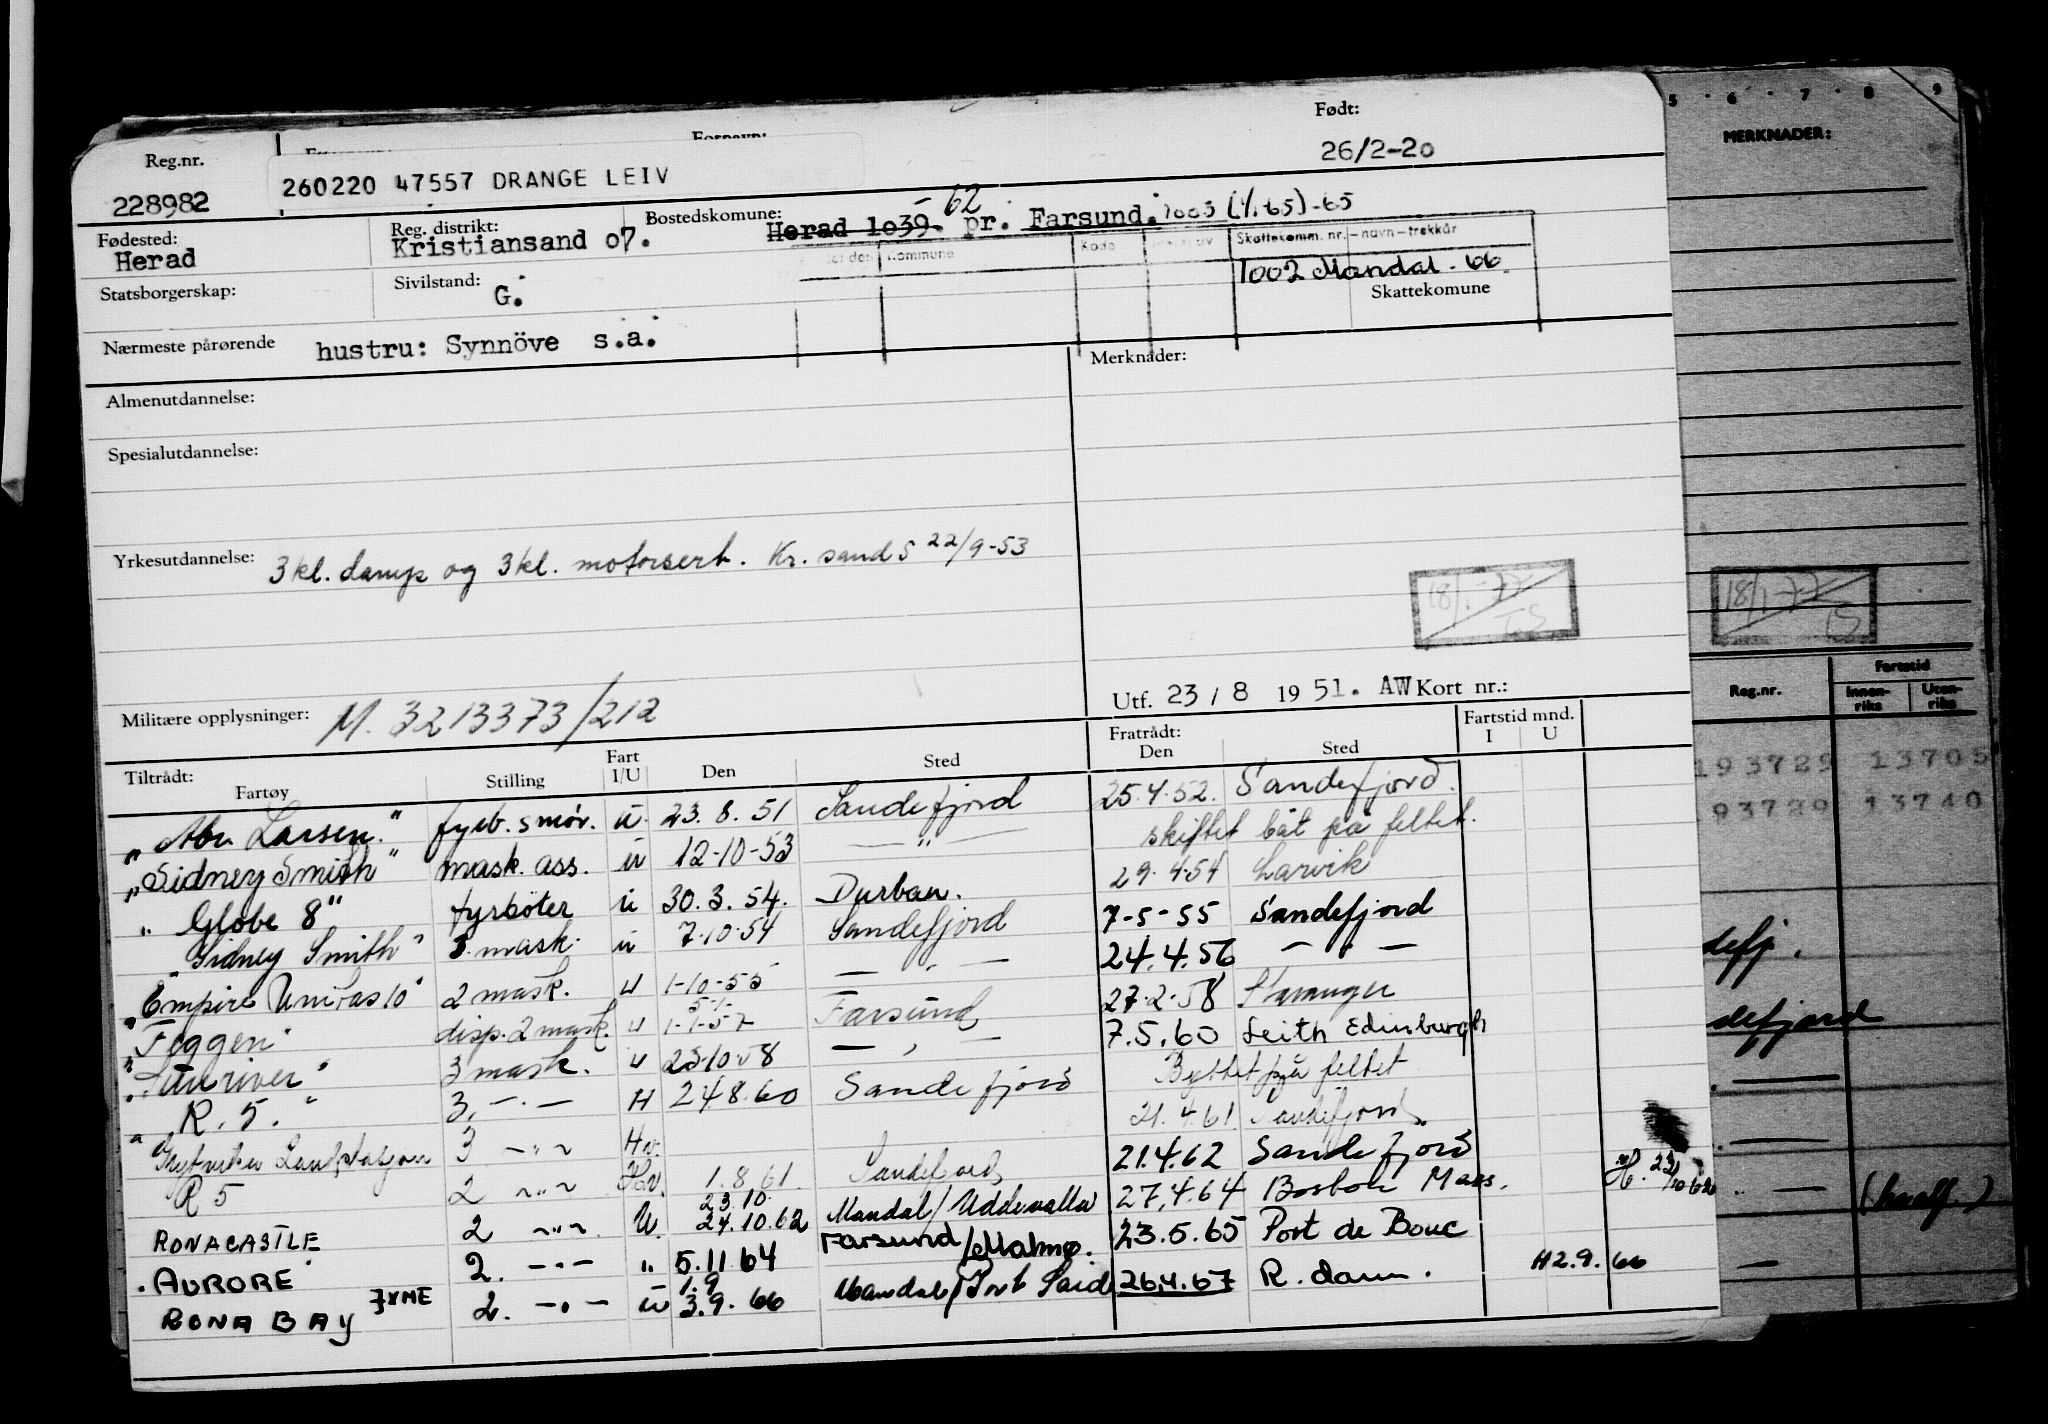 Reg.nr.
Fornavn:
Født:
228982
260220 47557 DRANGE LEIV
26/2-20
Fødested:
Reg. distrikt:
Bostedskomune:
Herad
Kristiansand 07.
Herad 1039. -62 pr. Farsund. 1003 (1/1.65)-65
Kommune
Kode
Skattekomm. nr. - navn - trekkår
1002 Mandal - 66.
Statsborgerskap:
Sivilstand:
G.
Skattekomune
Nærmeste pårørende
hustru: Synnöve s.a.
Merknader:
Almenutdannelse:
Spesialutdannelse:
Yrkesutdannelse:
3 kl. damp og 3 kl. motorsert. Kr. sand S 22/9-53
18/1-77
Militære opplysninger:
M. 3213373/212
Utf. 23/8 1951. AW Kort nr.:
Tiltrådt:
Fratrådt:
Fartstid mnd.
Fartøy
Stilling
Fart I/U
Den
Sted
Den
Sted
I
U
"Abr. Larsen." fyrb. smör. u. 23.8.51 Sandefjord 25.4.52. Sandefjord.
"Sidney Smith" mask. ass. u 12-10-53 — " — skiftet båt på feltet.
"Globe 8" fyrböter u 30.3.54. Durban. 29.4.54 Larvik
"Sidney Smith" 3 mask. u 7.10.54 Sandefjord 7-5-55 Sandefjord
"Empire Unitas 10" 2 mask. u 1-10-55 — " — 24.4.56 — " —
"Feggen" disp. 2 mask. u 5-1- 1-1-57 Farsund 27-2-58 Stavanger
"Sunriver" 3 mask. u 23-10-58 — " — 7.5.60 Leith Edinburgh
"R. 5." 3. — " — H 24.8.60 Sandefjord Byttet på feltet
" Grytviken Landstasjon 3 — " — Hv. 21.4.61 Sandefjord
R 5 2 — " — Hv. 1.8.61. Sandefjord 21.4.62 Sandefjord
RONACASTLE 2 — " — U. 23.10. 24.10.62 Mandal/Uddevalla 27.4.64 Boston Mass.
"AURORE" 2. — " — " 5.11.64 Farsund/Malmø. 23.5.65 Port de Bouc
RONA BAY 7XME 2. — " — u 1.9 3.9.66 Mandal/Port Said 26.4.67 R. dam. H2.9.66
5 · 6 · 7 · 8 9
MERKNADER:
18/1-77
Reg.nr.
Fartstid
Innen-riks
Uten-riks
193729 13705
93729 13740
defj.
defjord